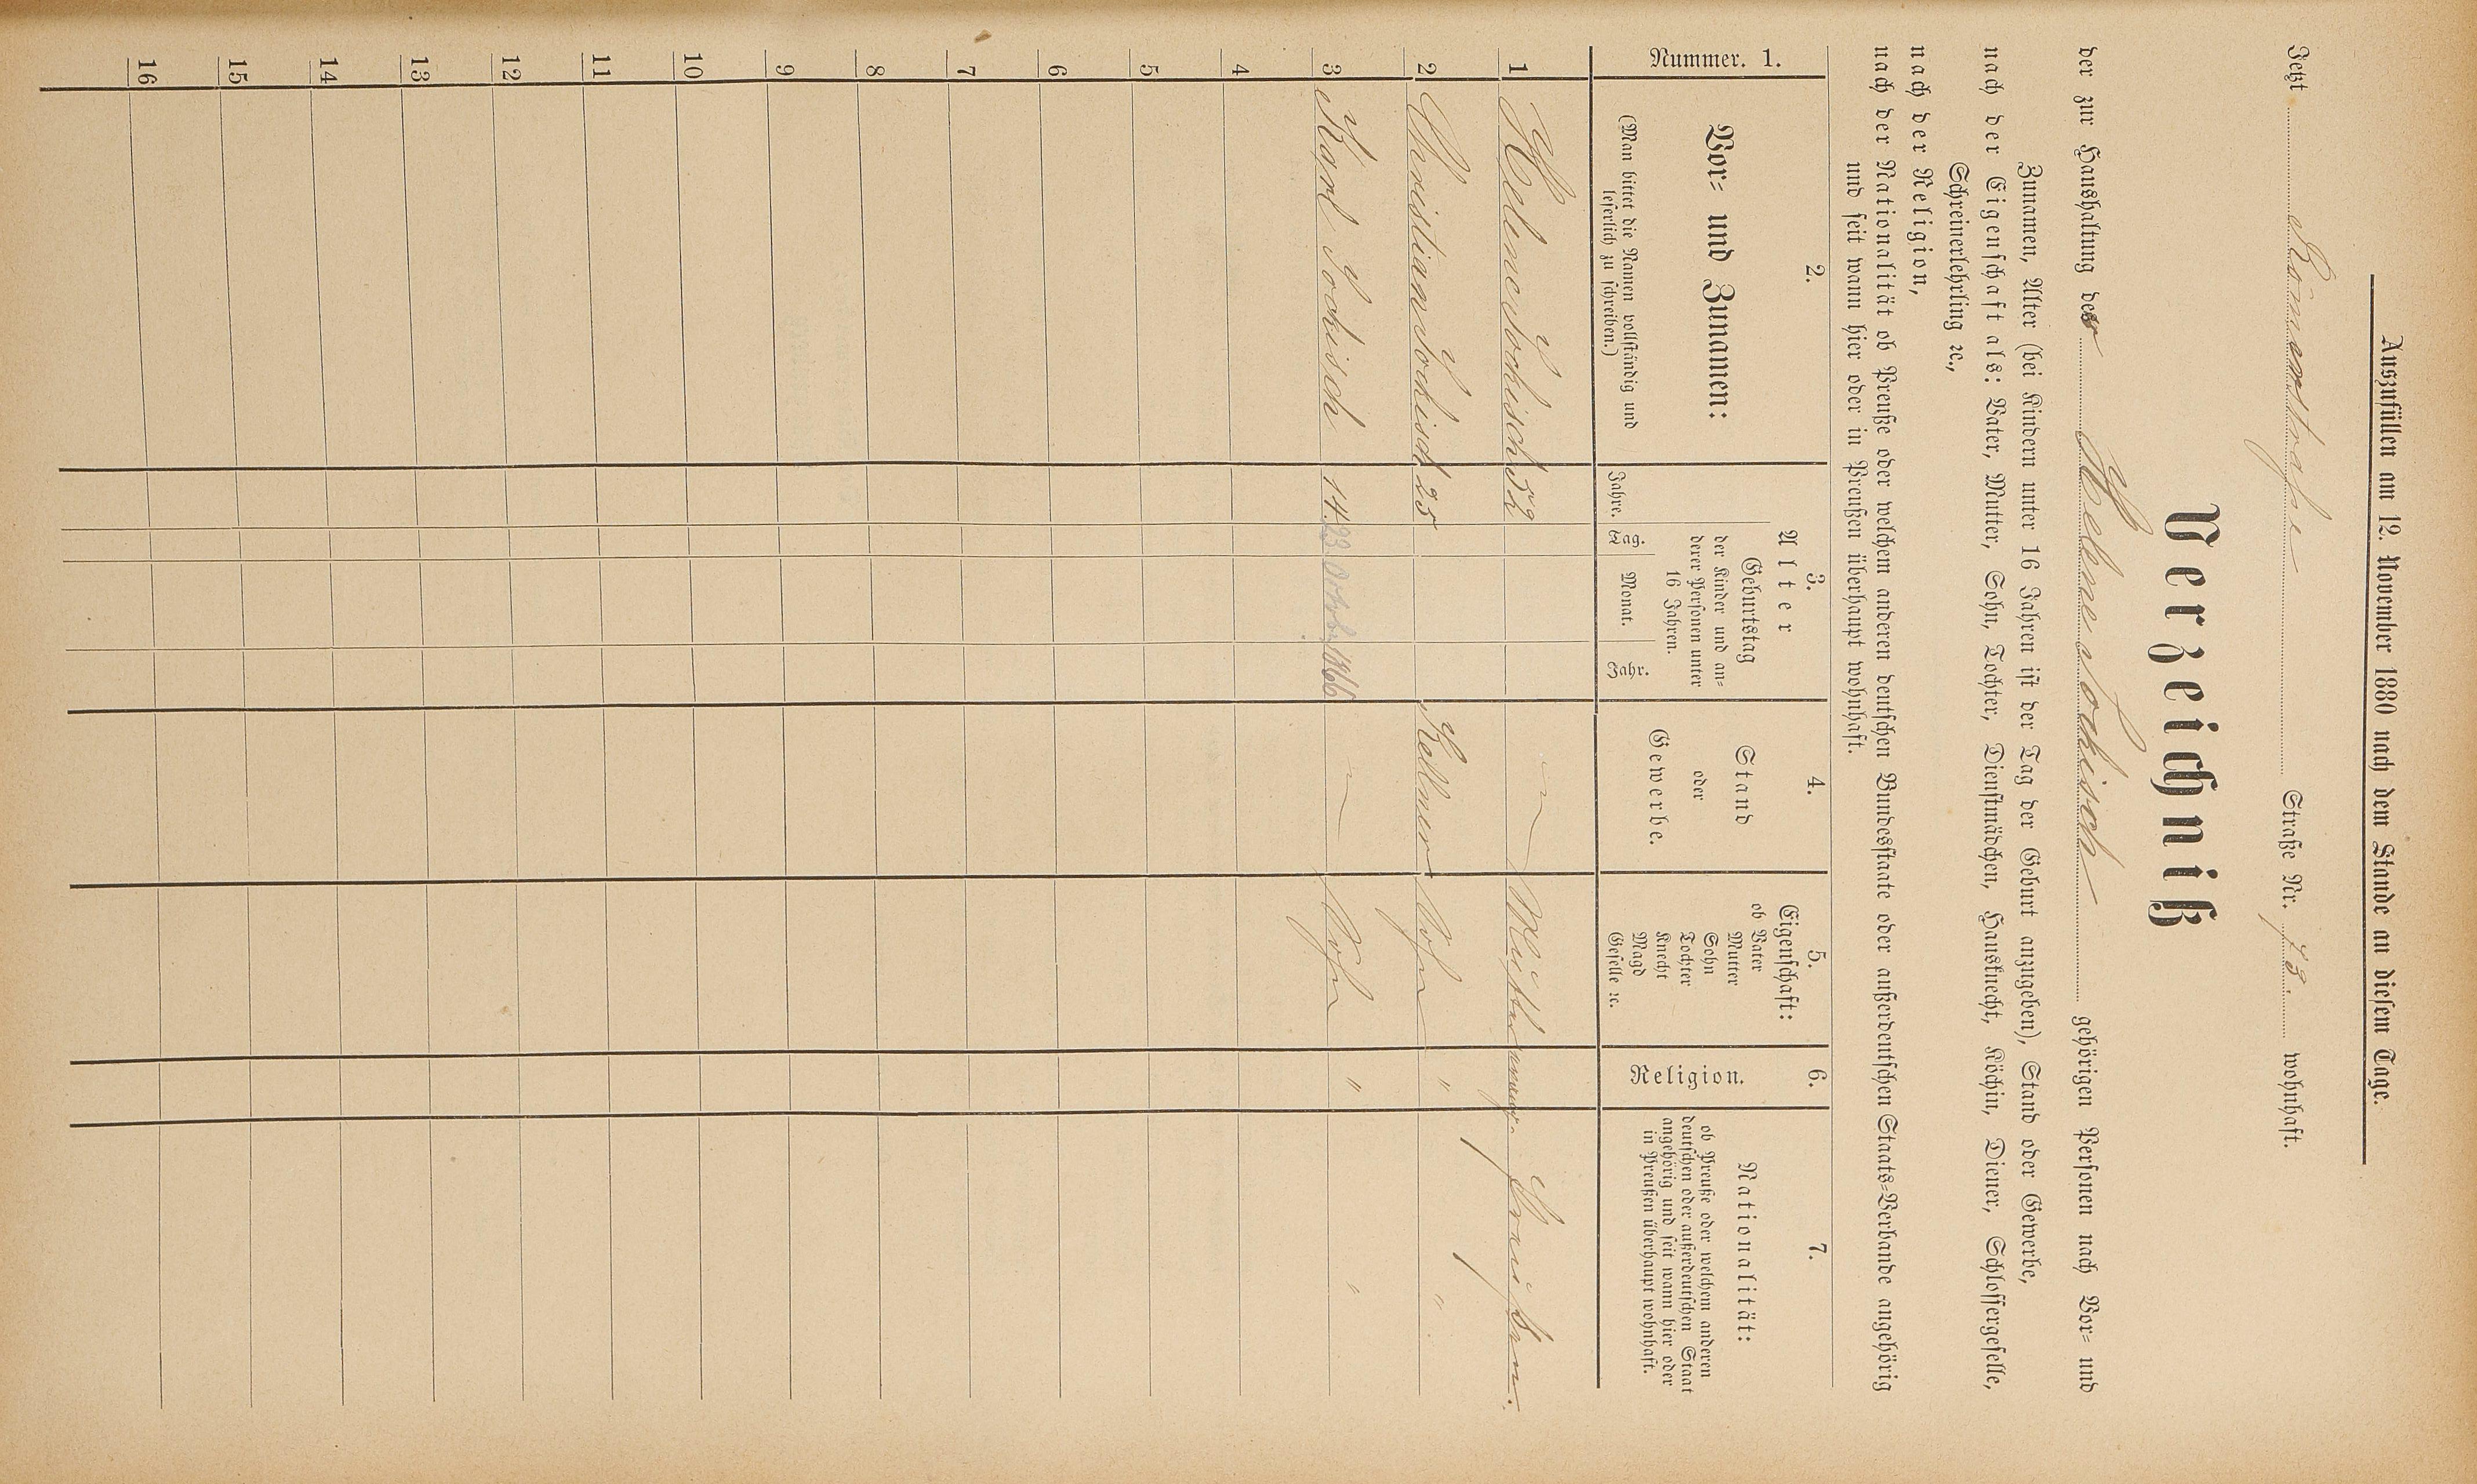 Auszufüllen am 12. November 1880 nach dem Stande an diesem Tage.
Jetzt Römerstraße Straße Nr. 73. wohnhaft.
Verzeichniß
der zur Haushaltung der Helene Jockisch gehörigen Personen nach Vor- und
Zunamen, Alter (bei Kindern unter 16 Jahren ist der Tag der Geburt anzugeben), Stand oder Gewerbe,
nach der Eigenschaft als: Vater, Mutter, Sohn, Tochter, Dienstmädchen, Hausknecht, Köchin, Diener, Schlossergeselle,
Schreinerlehrling ꝛc.,
nach der Religion,
nach der Nationalität ob Preuße oder welchem anderen deutschen Bundesstaate oder außerdeutschen Staats-Verbande angehörig
und seit wann hier oder in Preußen überhaupt wohnhaft.
Nummer. 1.
2.
Vor- und Zunamen:
(Man bittet die Namen vollständig und
leserlich zu schreiben.)
3.
Alter
Jahre.
Geburtstag
der Kinder und an-
derer Personen unter
16 Jahren.
Tag. Monat. Jahr.
4.
Stand
oder
Gewerbe.
5.
Eigenschaft:
ob Vater
Mutter
Sohn
Tochter
Knecht
Magd
Geselle ꝛc.
6.
Religion.
7.
Nationalität:
ob Preuße oder welchem anderen
deutschen oder außerdeutschen Staat
angehörig und seit wann hier oder
in Preußen überhaupt wohnhaft.
1 Helene Jockisch 52 — Mutter evang. Preußen.
2 Christian Jockisch 25 Kellner Sohn " "
3 Karl Jockisch 14. 23 October 1866 — Sohn " "
4
5
6
7
8
9
10
11
12
13
14
15
16